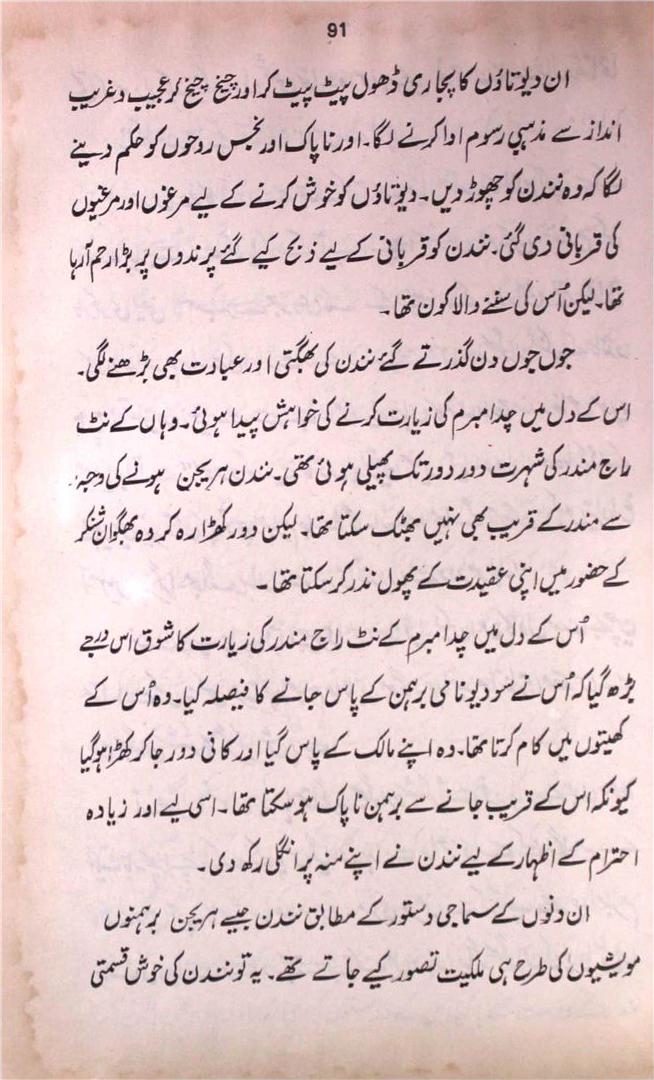 91
ان دیوتاؤں کا پجاری ڈھول پیٹ پیٹ کر اور چیخ چیخ کر عجیب و غریب
انداز سے مذہبی رسوم ادا کرنے لگا۔ اور ناپاک اور نجس روحوں کو حکم دینے
لگا کہ وہ نندن کو چھوڑ دیں۔ دیوتاؤں کو خوش کرنے کے لیے مرغوں اور مرغیوں
کی قربانی دی گئی۔ نندن کو قربانی کے لیے ذبح کیے گئے پرندوں پر بڑا رحم آرہا
تھا۔ لیکن اُس کی سننے والا کون تھا۔
جوں جوں دن گذرتے گئے نندن کی بھگتی اور عبادت بھی بڑھنے لگی۔
اس کے دل میں چدامبرم کی زیارت کرنے کی خواہش پیدا ہوئی۔ وہاں کے نٹ
راج مندر کی شہرت دور دور تک پھیلی ہوئی تھی۔ نندن ہریجن ہونے کی وجہ
سے مندر کے قریب بھی نہیں بھٹک سکتا تھا۔ لیکن دور کھڑا رہ کر وہ بھگوان شنکر
کے حضور میں اپنی عقیدت کے پھول نذر کر سکتا تھا۔
اُس کے دل میں چدامبرم کے نٹ راج مندر کی زیارت کا شوق اس درجے
بڑھ گیا کہ اُس نے سودیو نامی برہمن کے پاس جانے کا فیصلہ کیا۔ وہ اُس کے
کھیتوں میں کام کرتا تھا۔ وہ اپنے مالک کے پاس گیا اور کافی دور جا کر کھڑا ہو گیا
کیونکہ اس کے قریب جانے سے برہمن ناپاک ہو سکتا تھا۔ اسی لیے اور زیادہ
احترام کے اظہار کے لیے نندن نے اپنے منہ پر انگلی رکھ دی۔
ان دنوں کے سماجی دستور کے مطابق نندن جیسے ہریجن برہمنوں
مویشیوں کی طرح ہی ملکیت تصور کیے جاتے تھے۔ یہ تو نندن کی خوش قسمتی